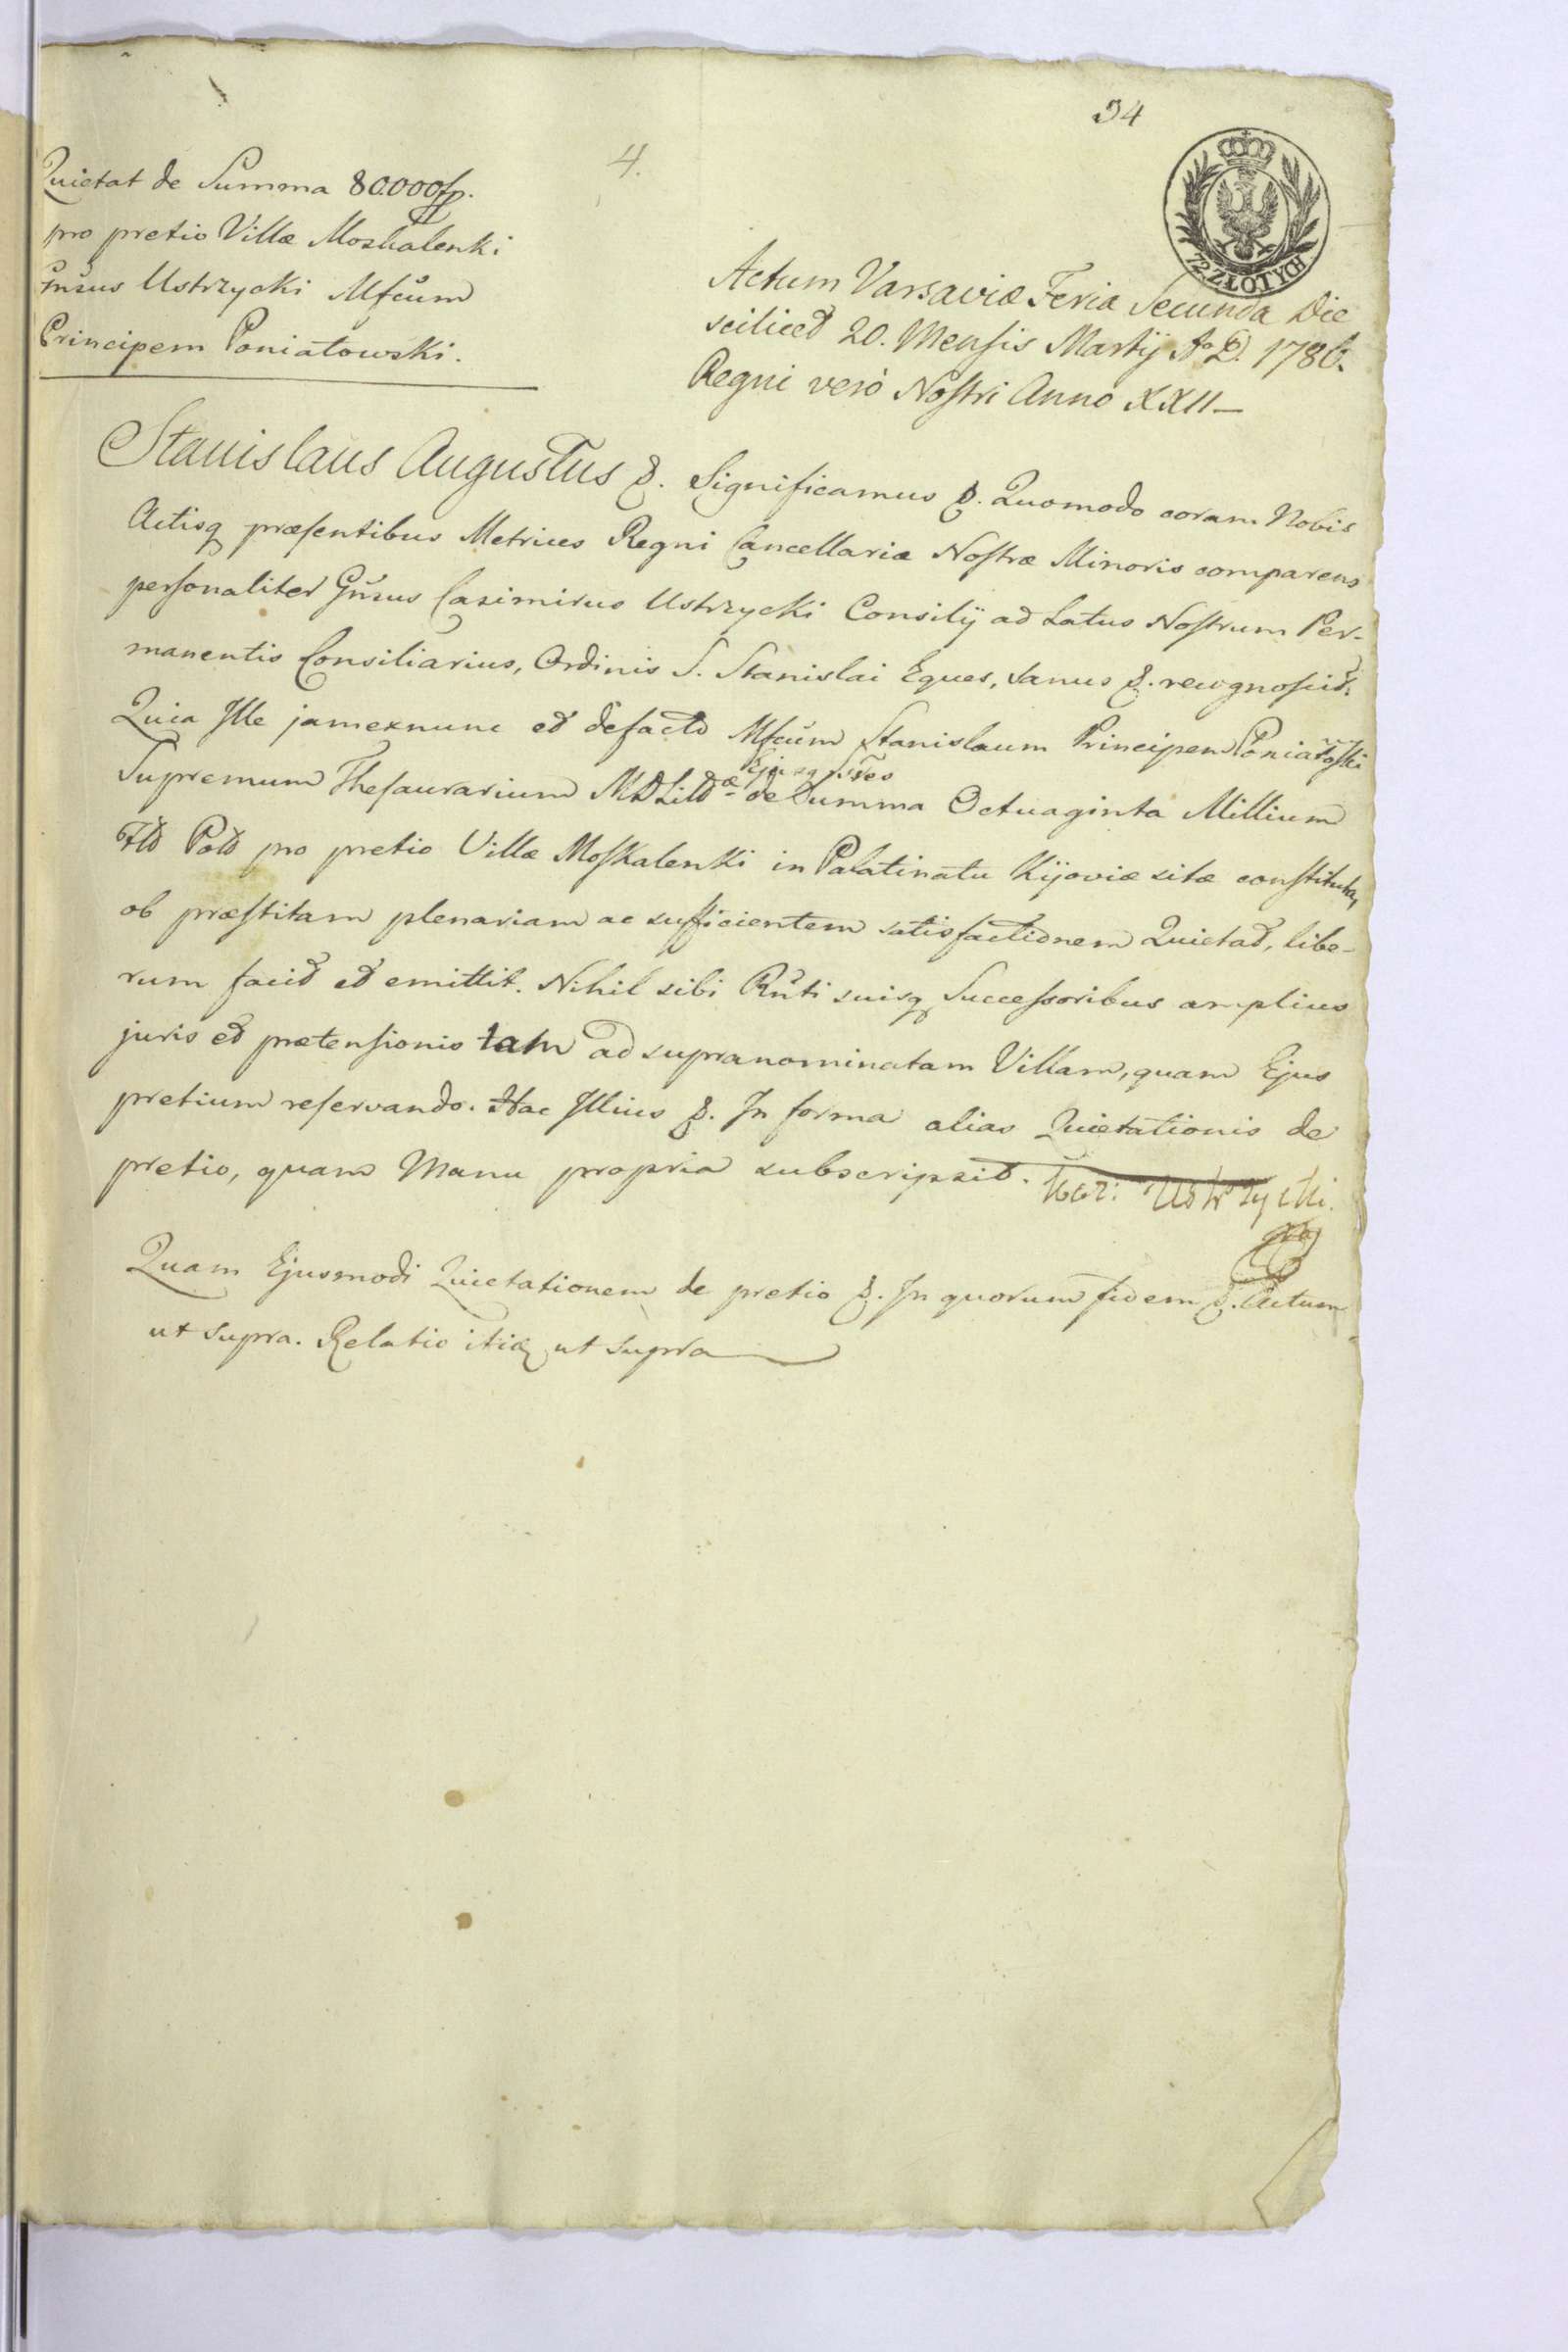 34
4.
72 ZŁOTYCH
Quietat de Summa 80.000 fp.
pro pretio Villæ Moskalenki
Gnsus Ustrzycki Mfcum
Principem Poniatowski.
Actum Varsaviæ Feria Secunda Die
scilicet 20. Mensis Martij Ao D. 1786.
Regni verò Nostri Anno XXII
Stanislaus Augustus &. Significamus &. Quomodo coram Nobis
Actisq præsentibus Metrices Regni Cancellariæ Nostræ Minoris comparens
personaliter Gnsus Casimirus Ustrzycki Consilij ad Latus Nostrum Per-
manentis Consiliarius, Ordinis S. Stanislai Eques, sanus &. recognoscit.
Quia Ille jamexnunc et defacto Mfcum Stanislaum Principem Poniatoski
Ejusq
Supremum Thesaurarium MDLittæ de Summa Octuaginta Millium
Flo Pol pro pretio Villæ Moskalenki in Palatinatu Kijoviæ sitæ constituta,
ob præstitam plenariam ac sufficientem satisfactionem Quietat, libe-
rum facit et emittit. Nihil sibi Rnti suisq Successoribus amplius
juris et prætensionis tam ad supranominatam Villam, quam Ejus
pretium reservando. Hac Illius &. In forma alias Quietationis de
pretio, quam Manu propria subscripsit. Kazi: Ustrzycki.
Quam Ejusmodi Quietationem de pretio &. In quorum fidem &. Actum
ut supra. Relatio itiq ut supra